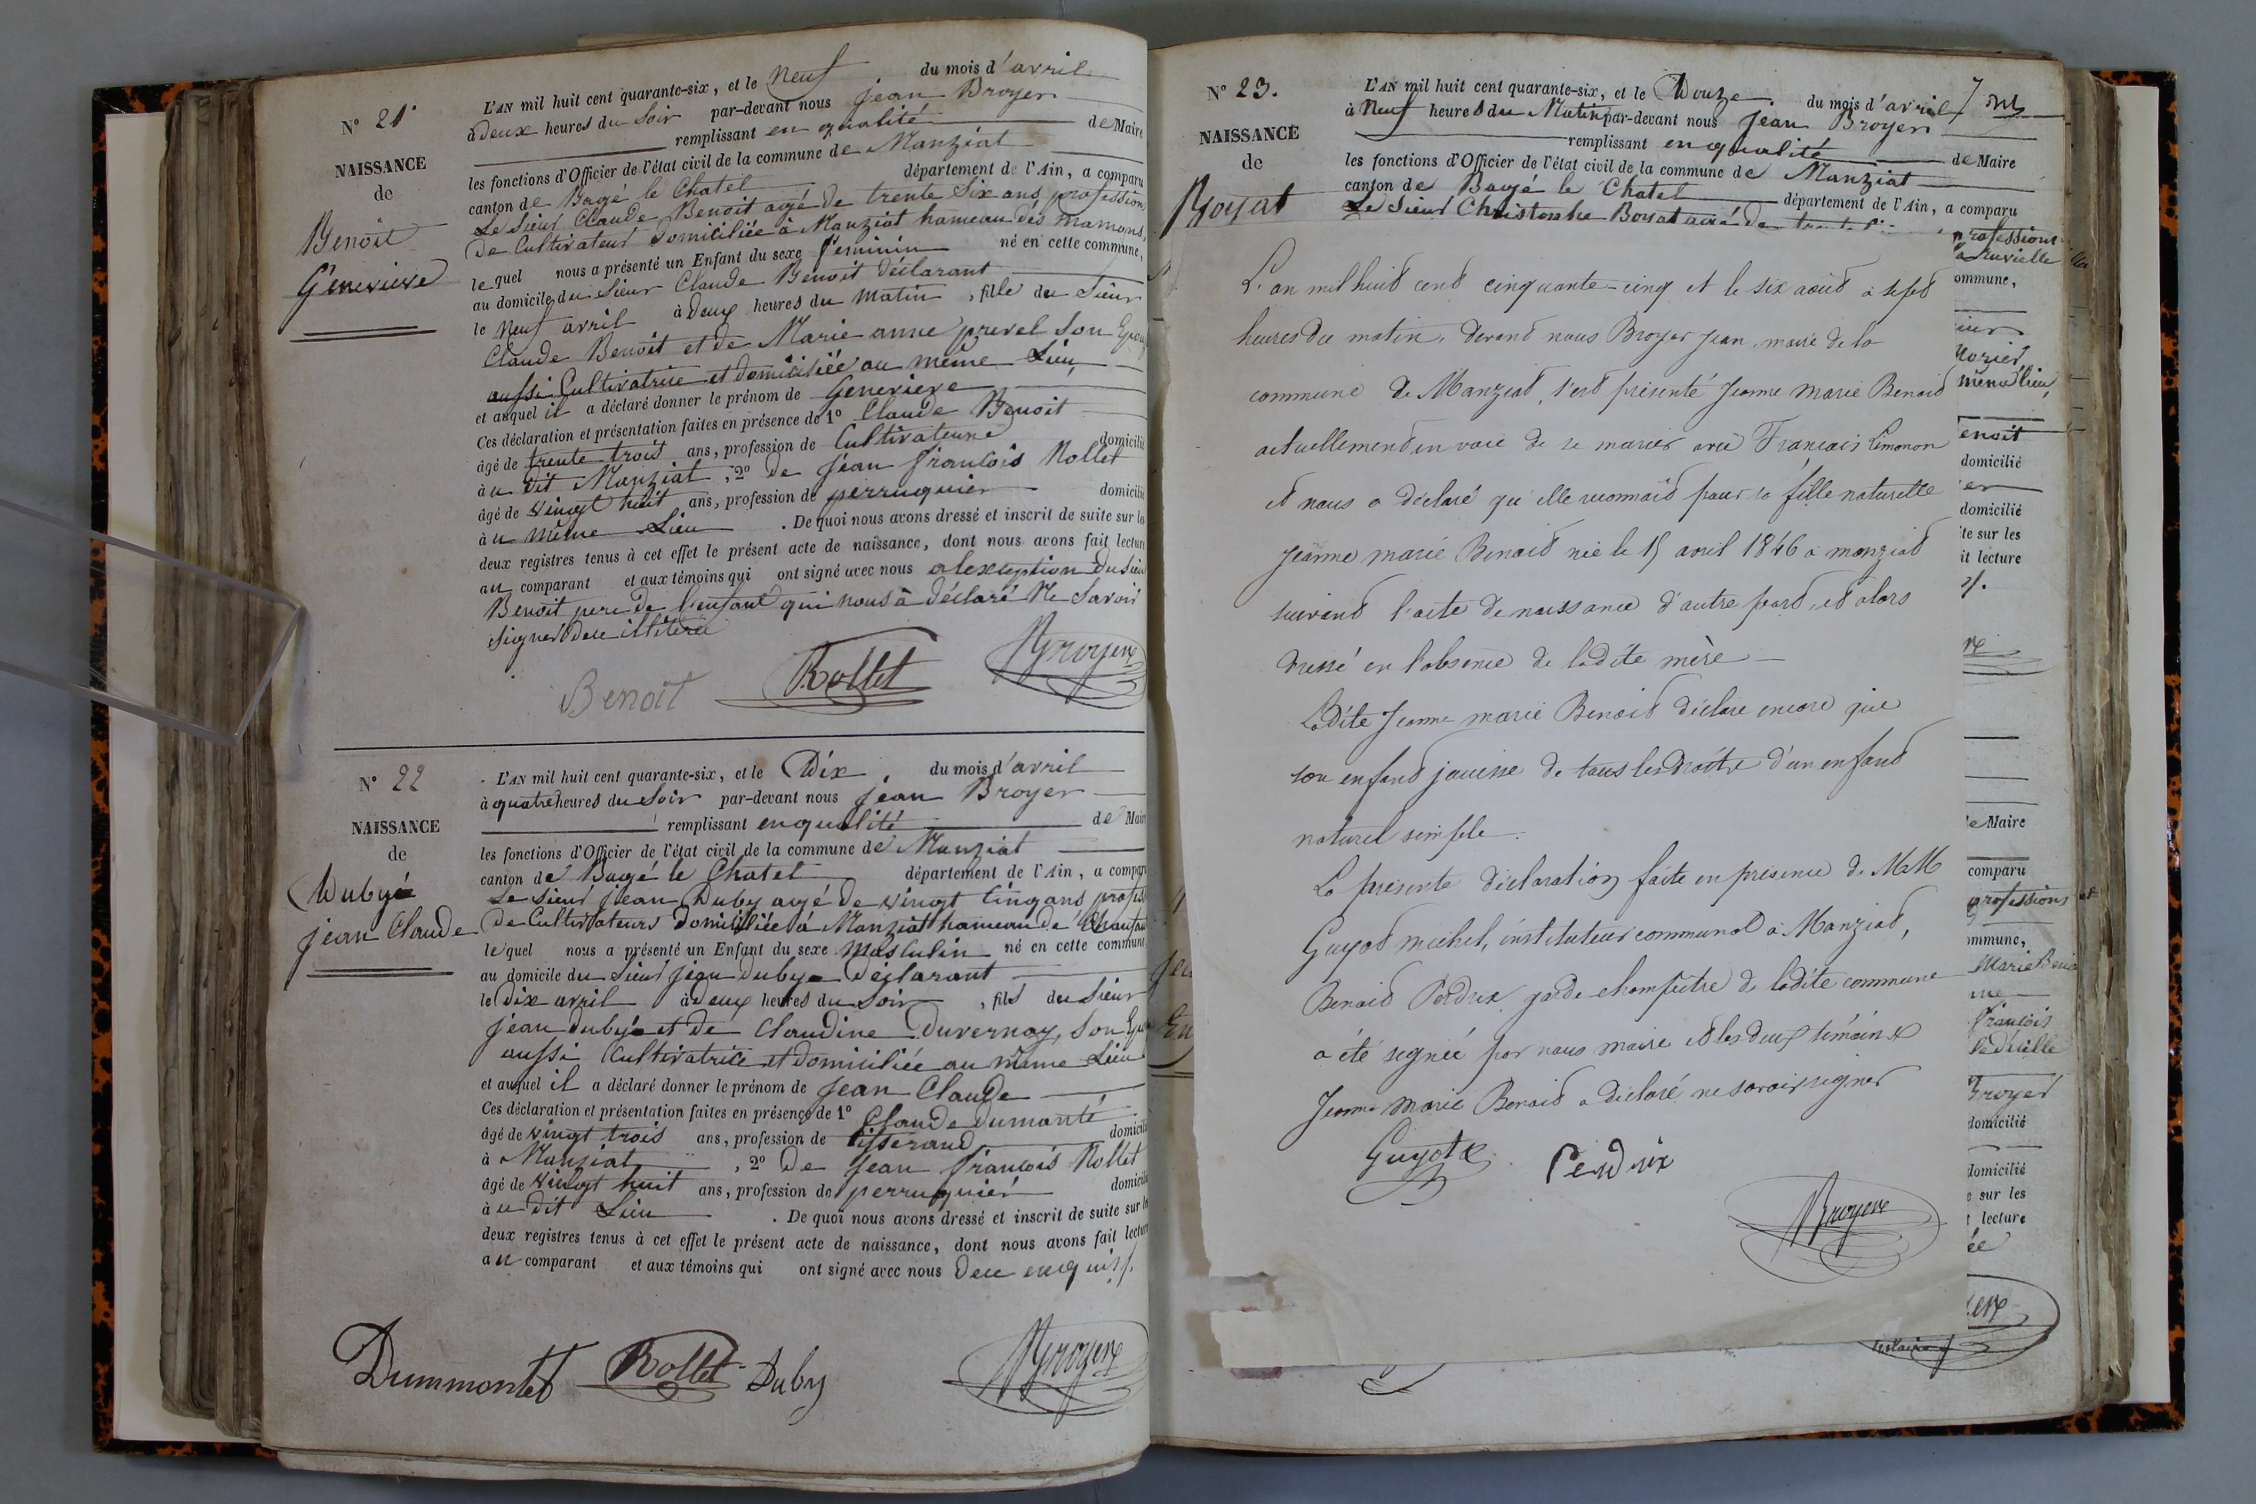 N° 21
NAISSANCE
de
Benoit
Genevieve
L'AN mil huit cent quarante-six, et le Neuf du mois d'avril
à deux heures du Soir par-devant nous jean Broyer
remplissant en qualité de Maire
les fonctions d'Officier de l'état civil de la commune de Manziat
canton de Bagé le Chatel département de l'Ain, a comparu
Le Sieur Claude Benoit agé de trente Six ans, profession
de Cultivateur domiciliée à Manziat hameau des mamons,
le quel nous a présenté un Enfant du sexe feminin né en cette commune,
au domicile du Sieur Claude Benoit déclarant
le Neuf avril à deux heures du matin, fille du Sieur
Claude Benoit et de Marie anne prevel Son Epou
aussi Cultivatrice et domiciliée au même Lieu,
et auquel il a déclaré donner le prénom de Genevieve
Ces déclaration et présentation faites en présence de 1° Claude Benoit
âgé de trente trois ans, profession de Cultivateur domicilié
à u dit Manziat, 2° de Jean françois Rollet
âgé de vingt huit ans, profession de perruquier domicilié
à u même Lieu. De quoi nous avons dressé et inscrit de suite sur les
deux registres tenus à cet effet le présent acte de naissance, dont nous avons fait lecture
au comparant et aux témoins qui ont signé avec nous alexception du Sieur
Benoit pere de l'enfant qui nous à déclaré Ne Savoir
signer de ce
Benoit Rollet Broyer
N° 22
NAISSANCE
de
Dubyé
jean Claude
L'AN mil huit cent quarante-six, et le Dix du mois d'avril
à quatre heures du Soir par-devant nous jean Broyer
remplissant en qualité de Mair
les fonctions d'Officier de l'état civil de la commune de Manziat
canton de Bagé le Chatel département de l'Ain, a comparu
Le Sieur jean Duby agé de vingt Cinq ans profess
de Cultivateurs domiciliée à Manziat hameau de
le quel nous a présenté un Enfant du sexe Masculin né en cette commune
au domicile du Sieur jean dubye déclarant
le dix avril à deux heures du Soir, fils du Sieur
jean dubyé et de Claudine Duvernay, Son Ep
aussi Cultivatrice et domiciliée au même Lieu
et auquel il a déclaré donner le prénom de Jean Claude
Ces déclaration et présentation faites en présence de 1° Claude dumonté
âgé de vingt trois ans, profession de tisserand domicili
à Manziat, 2° de Jean françois Rollet
âgé de vingt huit ans, profession de perruquier domicili
à u dit Lieu. De quoi nous avons dressé et inscrit de suite sur le
deux registres tenus à cet effet le présent acte de naissance, dont nous avons fait lecture
au comparant et aux témoins qui ont signé avec nous de ce enquis.
Dummontet Rollet Duby Broyer
N° 23.
NAISSANCE
de
Boyat
L'AN mil huit cent quarante-six, et le Douze du mois d'avril
à Neuf heures du Matin par-devant nous jean Broyer
remplissant en qualité de Maire
les fonctions d'Officier de l'état civil de la commune de Manziat
canton de Bagé le Chatel département de l'Ain, a comparu
Le Sieur Christophe Boyat agé de
L'an mil huit cent cinquante-cinq et le six août à sept
heures du matin, devant nous Broyer Jean, maire de la
commune de Manziat, s'est présenté Jeanne Marie Benoit
actuellement en voie de se marier avec Francois Limonon
et nous a déclaré qu'elle reconnait pour sa fille naturelle
Jeanne marie Benoit née le 15 avril 1846 à manziat
suivant l'acte de naissance d'autre part, et alors
dressé en l'absence de ladite mère
Ladite Jeanne marie Benoit déclare encore que
son enfant jouisse de tous les droits d'un enfant
naturel simple.
La présente déclaration faite en présence de MM
Guyot michel, instituteur communal à Manziat,
Benoit Perdrix garde champêtre de ladite commune
a été signée par nous maire et les deux témoins
Jeanne Marie Benoit a déclaré ne savoir signer
Guyot Perdrix
Broyer
professions
ommune,
même lieu,
enoit
domicilié
er
domicilié
te sur les
it lecture
e Maire
comparu
professions
ommune,
Marie Benoi
françois
Broyer
domicilié
domicilié
sur les
lecture